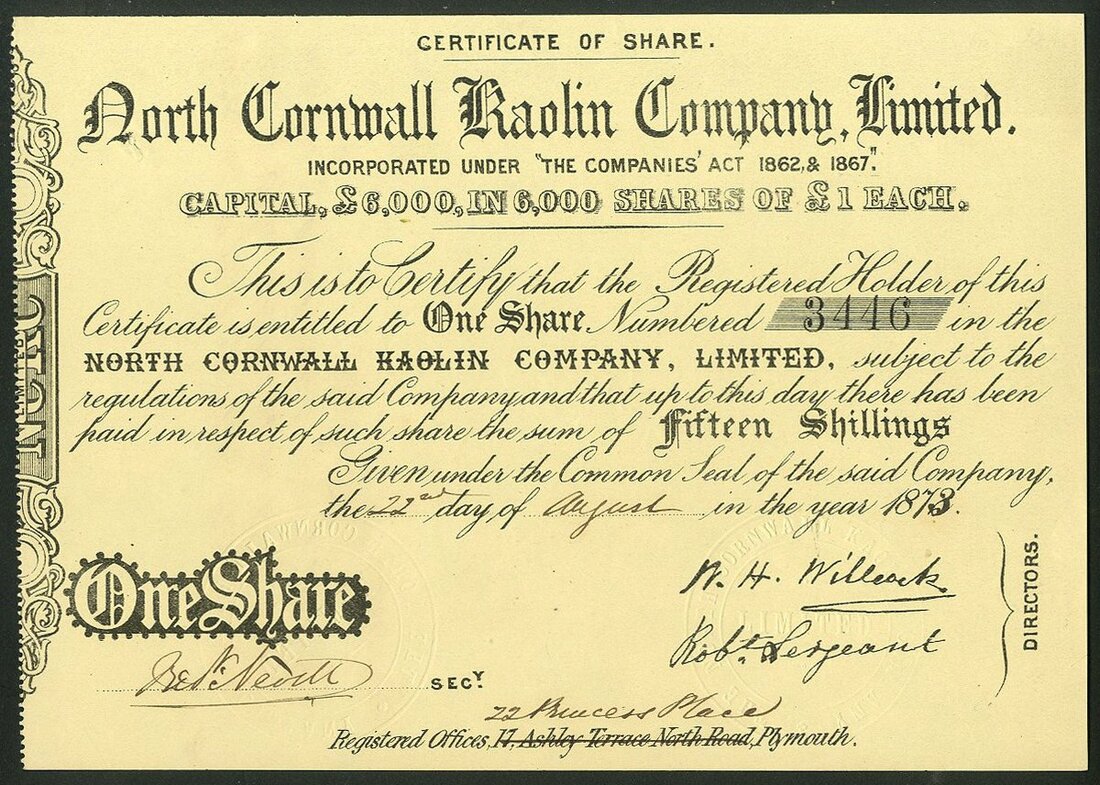 CERTIFICATE OF SHARE.
North Cornwall Kaolin Company, Limited.
INCORPORATED UNDER "THE COMPANIES' ACT 1862, & 1867."
CAPITAL, £6,000, IN 6,000 SHARES OF £1 EACH.
This is to Certify that the Registered Holder of this
Certificate is entitled to One Share Numbered 3446 in the
NORTH CORNWALL KAOLIN COMPANY, LIMITED, subject to the
regulations of the said Company and that up to this day there has been
paid in respect of such share the sum of Fifteen Shillings
Given under the Common Seal of the said Company,
the 22nd day of August in the year 1873.
One Share
W. H. Willcock
Robt. Sergeant
DIRECTORS.
Nevill SECY.
22 Princess Place
Registered Offices, 17, Ashley Terrace North Road, Plymouth.
LIMITED